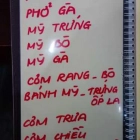 PHỞ GÀ
MỲ TRỨNG
MỲ BÒ
MỲ GÀ
CƠM RANG - BÒ
BÁNH MỲ - TRỨNG
ỐP LA
CƠM TRƯA
CƠM CHIỀU